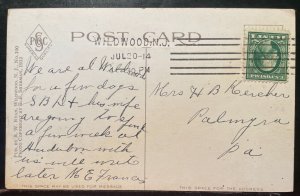 POST CARD
WILDWOOD, N.J.
JUL 20-14
We are at Wildwood
for a few days
SBA & his wife
are going to spend
a few week at
with
us will write
later M E France
Mrs H B Kercher
Palmyra
Pa
THIS SPACE MAY BE USED FOR MESSAGE
THIS SPACE FOR ADDRESS